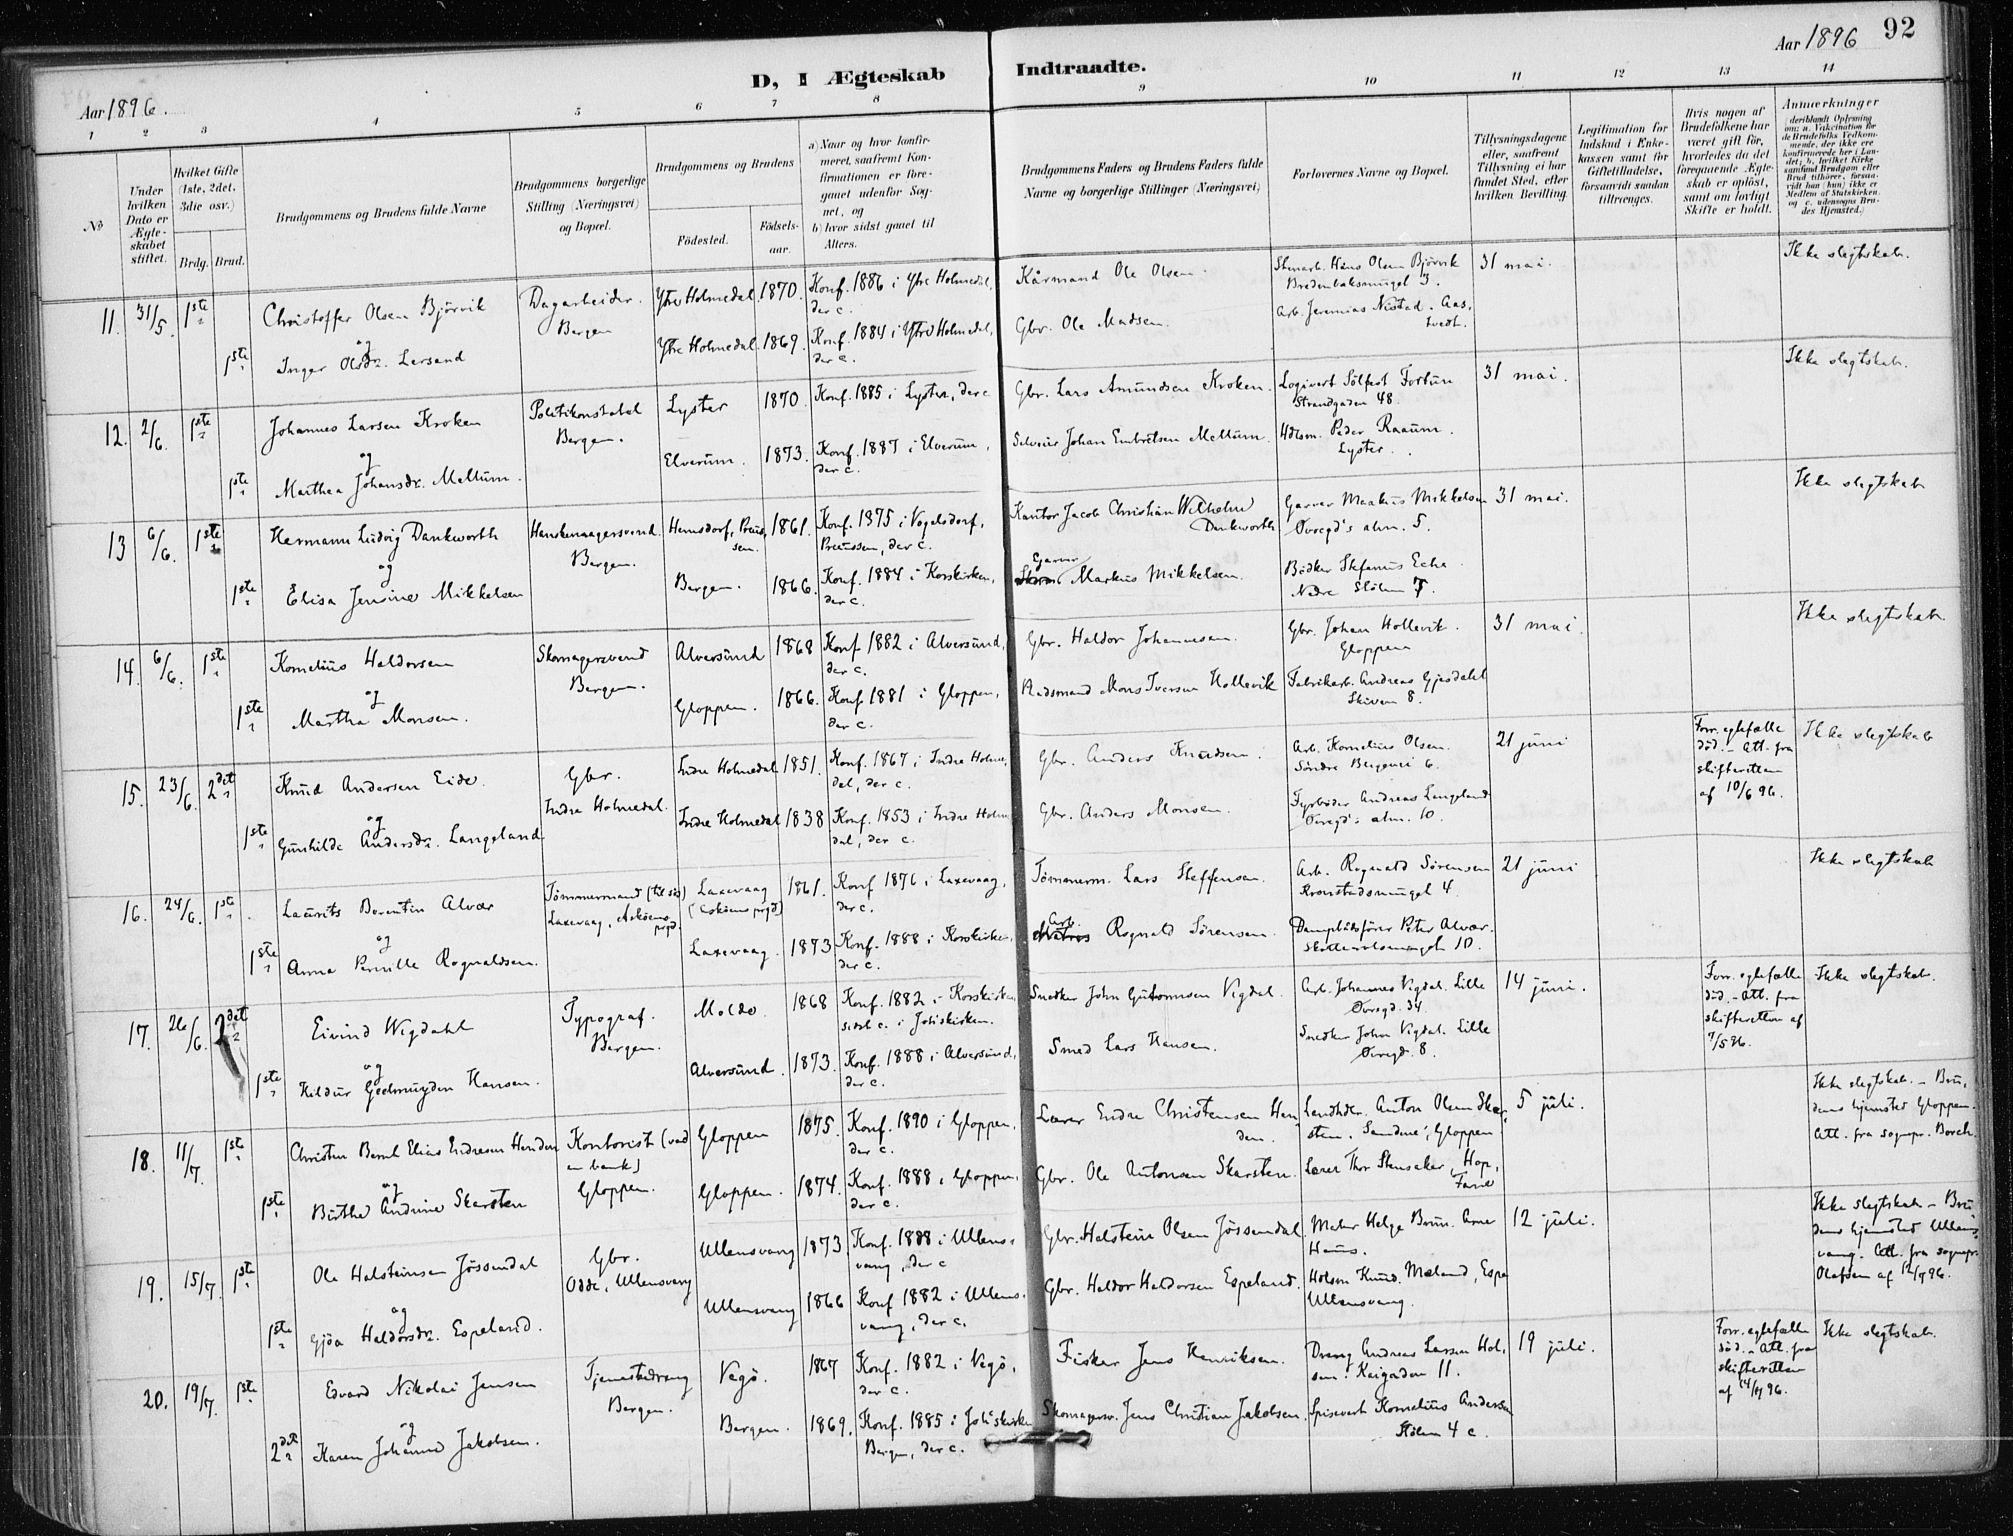 Aar 1896.
D, I Ægteskab
Indtraadte.
Aar 1896
92
1 2 3 4 5 6 7 8 9 10 11 12 13 14
No
Under hvilken Dato er Ægteskabet stiftet.
Hvilket Gifte (1ste, 2det, 3die osv.)
Brdg. Brud.
Brudgommens og Brudens fulde Navne
Brudgommens borgerlige Stilling (Næringsvei) og Bopæl.
Brudgommens og Brudens
Fødested.
Fødselsaar.
a) Naar og hvor konfirmeret, saafremt Konfirmationen er foregaaet udenfor Sognet, og
b) hvor sidst gaaet til Alters.
Brudgommens Faders og Brudens Faders fulde Navne og borgerlige Stillinger (Næringsvei)
Forlovernes Navne og Bopæl.
Tillysningsdagene eller, saafremt Tillysning ei har fundet Sted, efter hvilken Bevilling
Legitimation for Indskud i Enkekassen samt for Giftetilladelse, forsaavidt saadan tiltrænges.
Hvis nogen af Brudefolkene har været gift før, hvorledes da det foregaaende Ægteskab er opløst, samt om lovligt Skifte er holdt.
Anmærkninger (deriblandt Oplysning om: a. Vaccination for de Brudefolks Vedkommende, der ikke ere konfirmerede her i Landet; b. hvilket Kirkesamfund Brudgom eller Brud tilhører, forsaavidt han (hun) ikke er Medlem af Statskirken, og c. udensogns Brudes Hjemsted.)
11. 31/5. 1ste Christoffer Olsen Bjørvik Dagarbeider. Bergen Ytre Holmedal 1870. Konf. 1886 i Ytre Holmedal, der c. Kårmand Ole Olsen. Stenarb. Hans Olsen Bjørvik Bredenbaksmuget 3. 31 mai. Ikke slegtskab.
og
1ste Inger Olsdr. Lersand Ytre Holmedal 1869. Konf. 1884 i Ytre Holmedal, der c. Gbr. Ole Madsen. Arb. Jeremias Nistad. Aastvedt.
12. 2/6. 1ste Johannes Larsen Kroken Politikonstabel Bergen. Lyster 1870. Konf. 1885 i Lyster, der c Gbr. Lars Amundsen Kroken. Logivert Sølfest Fortun Strandgaden 48. 31 mai. Ikke slegtskab.
og
1ste Marthea Johansdr. Mellum. Elverum. 1873. Konf. 1887 i Elverum, der c. Selveier Johan Embretsen Mellum. Hdlsm. Peder Raaum. Lyster.
13 6/6. 1ste Hermann Ludvig Dankworth Hanskemagersvend. Bergen. Hemsdorf, Preussen. 1861. Konf. 1875 i Vogelsdorf, Preussen, der c. Kantor Jacob Christian Wilhelm Dankworth Garver Markus Mikkelsen Øvregd's alm. 5. 31 mai. Ikke slegtskab
og
1ste Elisa Jensine Mikkelsen Bergen. 1866. Konf. 1884 i Korskirken, der c. Garver Markus Mikkelsen. Bødker Stefanus Eche Nedre Stølen 7.
14. 6/6. 1ste Kornelius Haldorsen Skomagersvend Bergen. Alversund 1868 Konf 1882 i Alversund, der c. Gbr. Haldor Johannesen. Gbr. Johan Hollevik. Gloppen 31 mai. Ikke slegtskab
og
1ste Martha Monsen. Gloppen. 1866. Konf. 1881 i Gloppen, der c. Mons Iversen Hollevik Fabrikarb. Andreas Gjesdahl Skiven 8.
15. 23/6. 2det Knud Andersen Eide. Gbr. Indre Holmedal. Indre Holmedal 1851. Konf. 1867 i Indre Holmedal, der c. Gbr. Anders Knudsen. Arb. Kornelius Olsen. Søndre Bergenei 6. 21 juni Forr. egtefælle død. – Att. fra skifteretten af 10/6 96. Ikke slegtskab
og
1ste Gunhilde Andersdr. Langeland Indre Holmedal 1838 Konf. 1853 i Indre Holmedal, der c. Gbr. Anders Monsen. Fyrbøder Andreas Langeland Øvregd's alm. 10.
16. 24/6. 1ste Laurits Berentin Alvær Tømmermand (til søs) Laxevaag, Askøens prgd. Laxevaag (Askøens prgd) 1861. Konf 1876 i Laxevaag, der c. Tømmerm. Lars Steffensen. Arb. Rognald Sørensen Kronstadsmuget 4. 21 juni Ikke slegtskab
og
1ste Anna Pernille Rognaldsen. Laxevaag. 1873 Konf. 1888 i Korskirken, der c. Arb. Rognald Sørensen. Dampbådsfører Peter Alvær. 10.
17. 26/6. 2det Eivind Wigdahl Typograf. Bergen. Molde. 1868 Konf. 1882 i Korskirken sidst c. i Johskirken. Snedker John Guttormsen Vigdal. Arb. Johannes Vigdal. Lille Øvregd. 34 14 juni. Forr. egtefælle død. – Att. fra skifteretten af 7/5 96. Ikke slegtskab.
og
1ste Hildur Geelmuyden Hansen. Alversund. 1873. Konf. 1888 i Alversund, der c. Smed Lars Hansen. Snedker John Vigdal. Lille Øvregd. 8.
18. 11/7. 1ste Christen Bernt Elias Endresen Henden Kontorist (ved en bank) Gloppen. Gloppen 1875. Konf. 1890 i Gloppen, der c. Lærer Endre Christensen Henden. Landhdlr. Anton Olsen Skarsten. Sandene, Gloppen 5 juli. Ikke slegtskab. – Brudens hjemsted Gloppen. Att. fra sognepr. Borch.
og
1ste Birthe Andrine Skarsten Gloppen. 1874. Konf. 1888 i Gloppen, der c. Gbr. Ole Antonsen Skarsten. Lærer Thor Stensaker, Hop, Fane
19. 15/7. 1ste Ole Halsteinsen Jøssendal Gbr. Odde, Ullensvang Ullensvang 1873 Konf. 1888 i Ullensvang, der c Gbr. Halstein Olsen Jøssendal Maler Helge Brun. Arne Haus. 12 juli. Ikke slegtskab – Brudens hjemsted Ullensvang. Att. fra sognepr. Olafsen af 12/7 96.
og
1ste Gjøa Haldorsdr. Espeland. Ullensvang 1866 Konf 1882 i Ullensvang, der c. Gbr. Haldor Haldorsen Espeland. Holsm Knud Mæland, Espe Ullensvang.
20. 19/7. 1ste Edvard Nikolai Jensen Tjenestedreng Bergen. Vegø. 1867 Konf. 1882 i Vegø, der c. Fisker Jens Henriksen. Dreng Andreas Larsen Holsen. Kaigaden 11. 19 juli. Forr. egtefælle død. – Att. fra skifteretten af 14/7 96. Ikke slegtskab.
og
2det Karen Johanne Jakobsen. Bergen. 1869. Konf. 1885 i Johskirken Bergen, der c. Skomagersv. Jens Christian Jakobsen. Spisevert Kornelius Andersen Stølen 4 c.